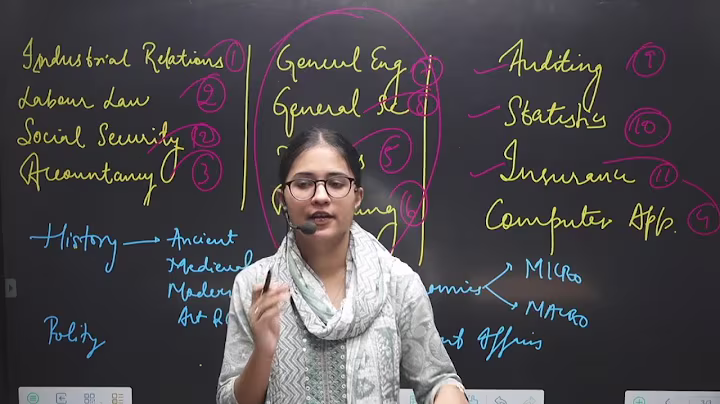 Industrial Relations 1
Labour Law 2
Social Security 2
Accountancy 3
General Eng
General Sc
5
6
Auditing
Statistics 10
Insurance 11
Computer App. 9
History → Ancient
Medieval
Modern
Art
Polity
MICRO
MACRO
Affairs